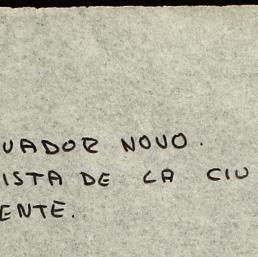 UADOR NOVO.
ISTA DE LA CIU
ENTE.